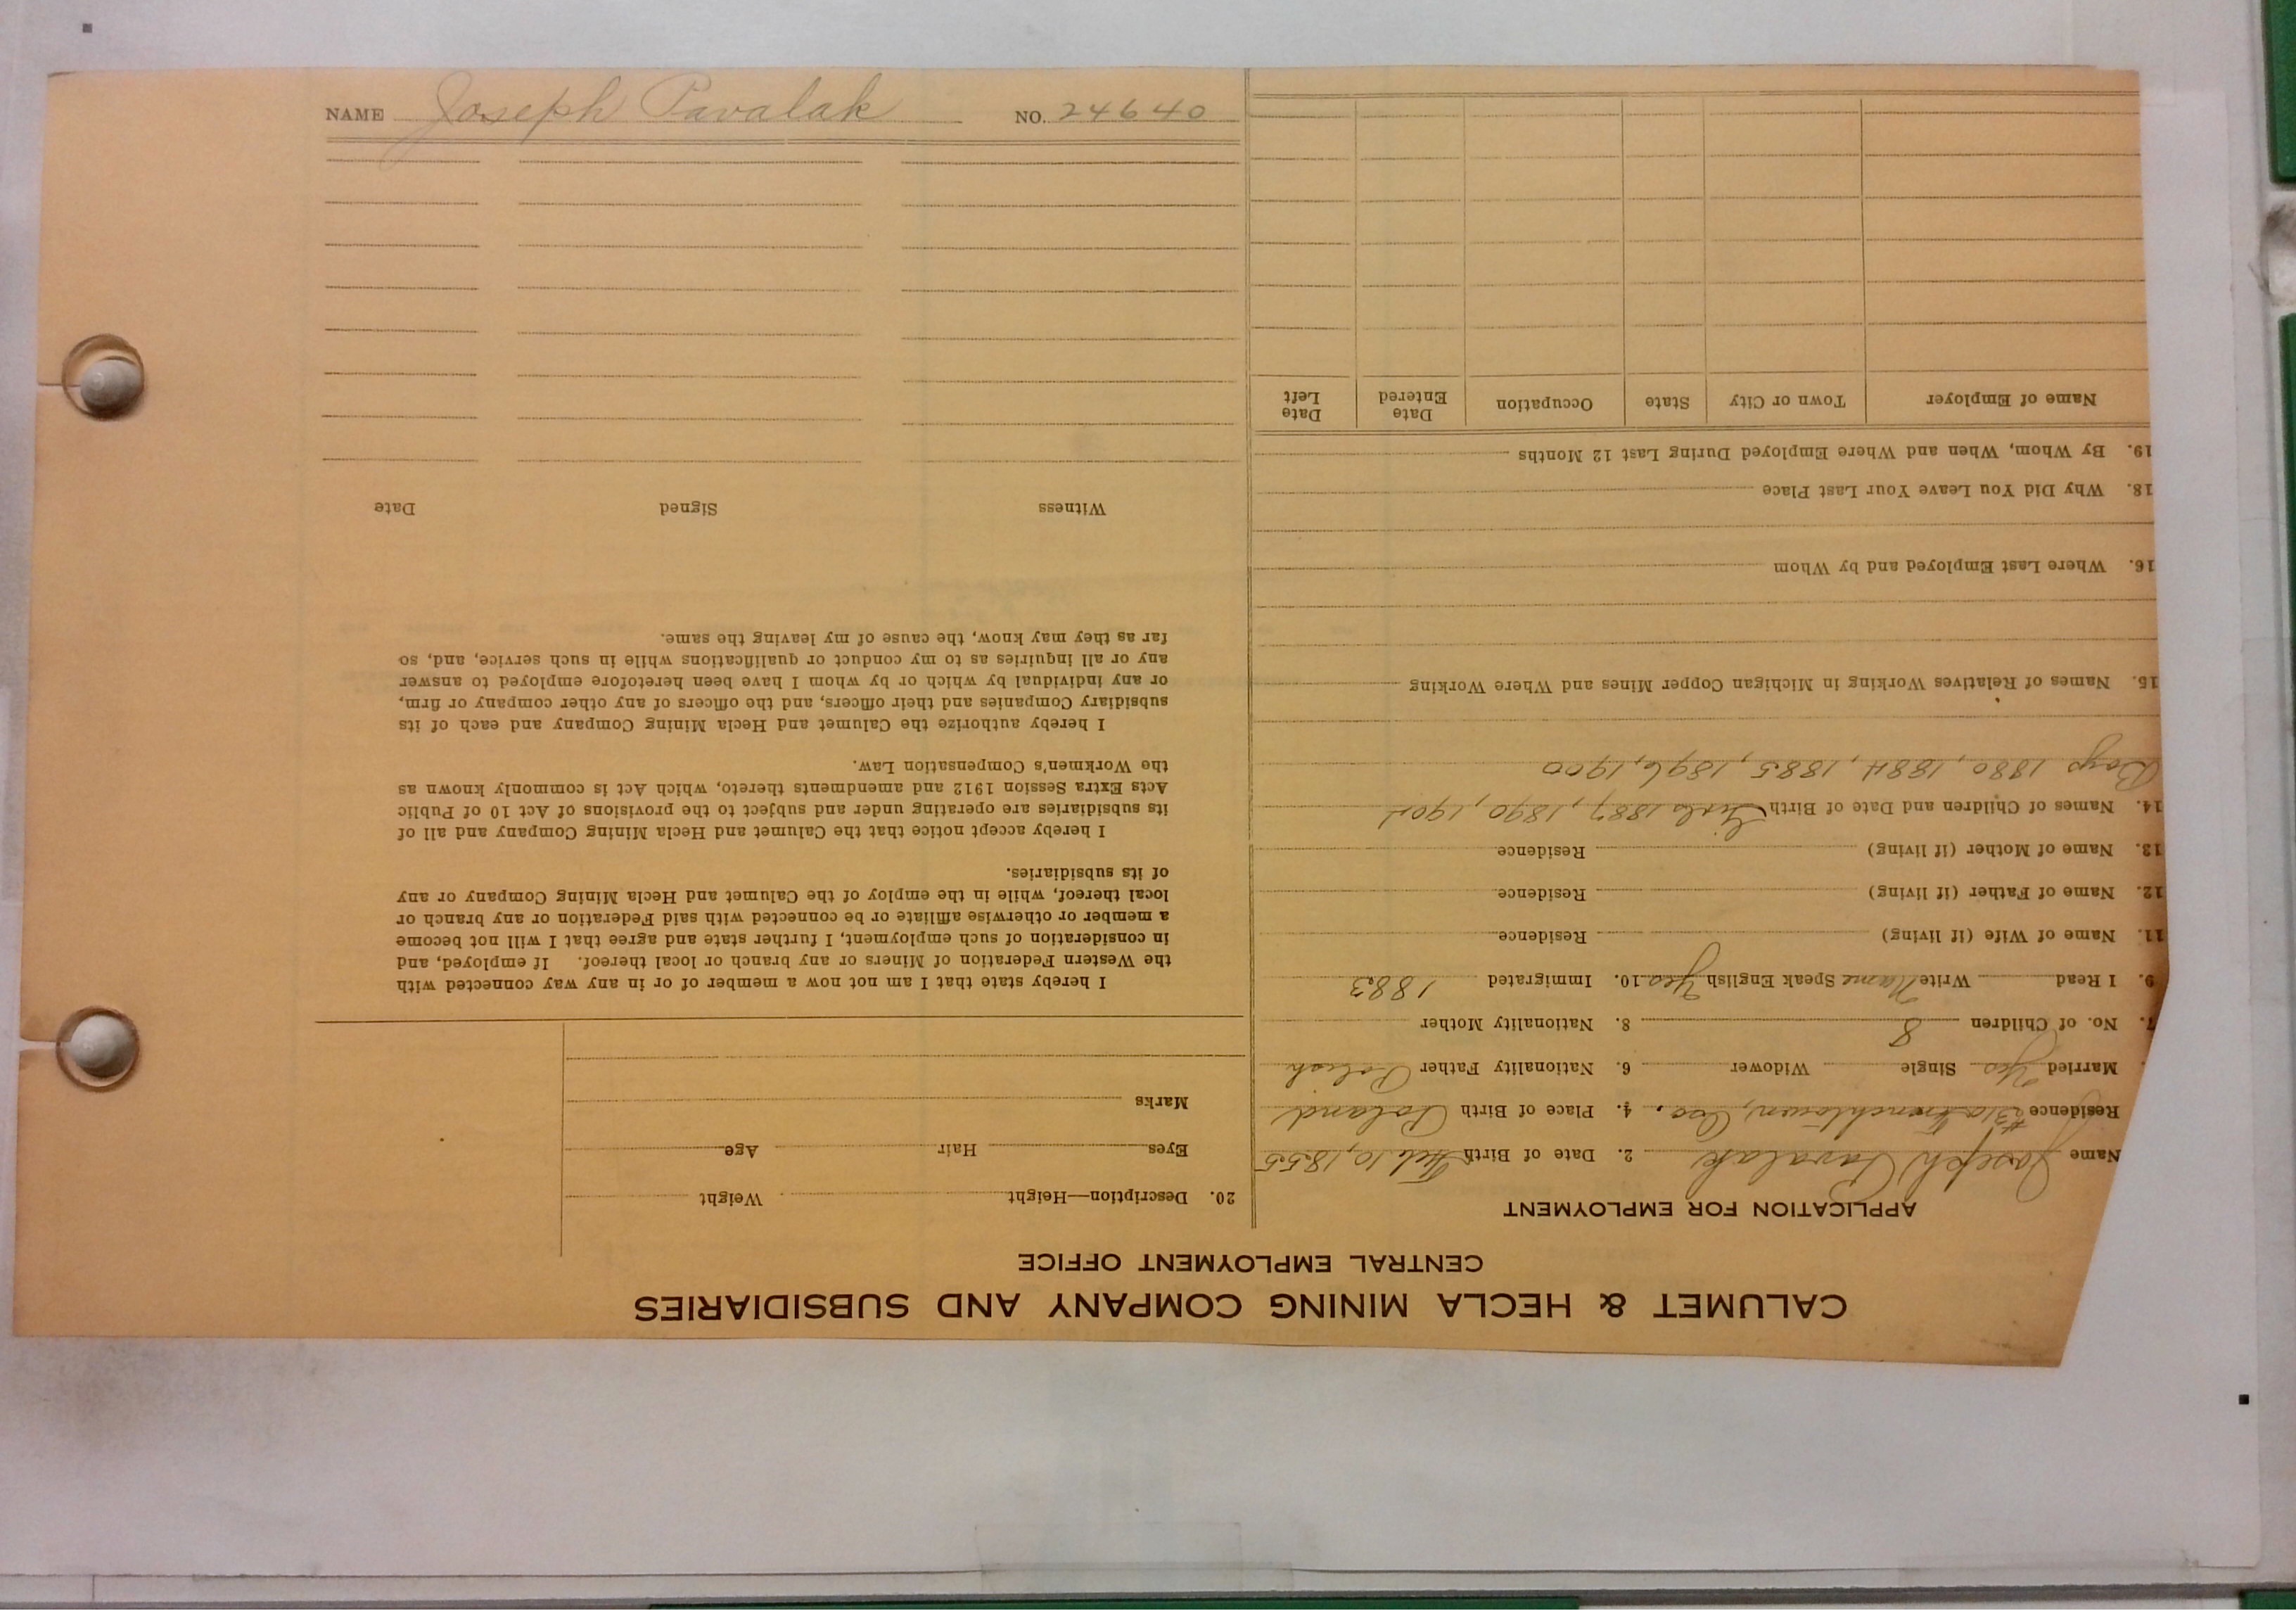 NAME Joseph Pavalak NO. 24640
CALUMET & HECLA MINING COMPANY AND SUBSIDIARIES
CENTRAL EMPLOYMENT OFFICE
APPLICATION FOR EMPLOYMENT
Name Joseph Pavalak 2. Date of Birth Feb. 10, 1855
Residence #310 Frenchtown, Osc. 4. Place of Birth Poland
Married Yes Single Widower 6. Nationality Father Polish
7. No. of Children 8 8. Nationality Mother
9. I Read Write Name Speak English Yes 10. Immigrated 1883
11. Name of Wife (if living) Residence
12. Name of Father (if living) Residence
13. Name of Mother (if living) Residence
14. Names of Children and Date of Birth Girls 1887, 1890, 1901
Boys 1880, 1884, 1885, 1896, 1900
15. Names of Relatives Working in Michigan Copper Mines and Where Working
16. Where Last Employed and by Whom
18. Why Did You Leave Your Last Place
19. By Whom, When and Where Employed During Last 12 Months
Name of Employer Town or City State Occupation Date Entered Date Left
20. Description—Height Weight
Eyes Hair Age
Marks
I hereby state that I am not now a member of or in any way connected with
the Western Federation of Miners or any branch or local thereof. If employed, and
in consideration of such employment, I further state and agree that I will not become
a member or otherwise affiliate or be connected with said Federation or any branch or
local thereof, while in the employ of the Calumet and Hecla Mining Company or any
of its subsidiaries.
I hereby accept notice that the Calumet and Hecla Mining Company and all of
its subsidiaries are operating under and subject to the provisions of Act 10 of Public
Acts Extra Session 1912 and amendments thereto, which Act is commonly known as
the Workmen's Compensation Law.
I hereby authorize the Calumet and Hecla Mining Company and each of its
subsidiary Companies and their officers, and the officers of any other company or firm,
or any individual by which or by whom I have been heretofore employed to answer
any or all inquiries as to my conduct or qualifications while in such service, and, so
far as they may know, the cause of my leaving the same.
Witness Signed Date